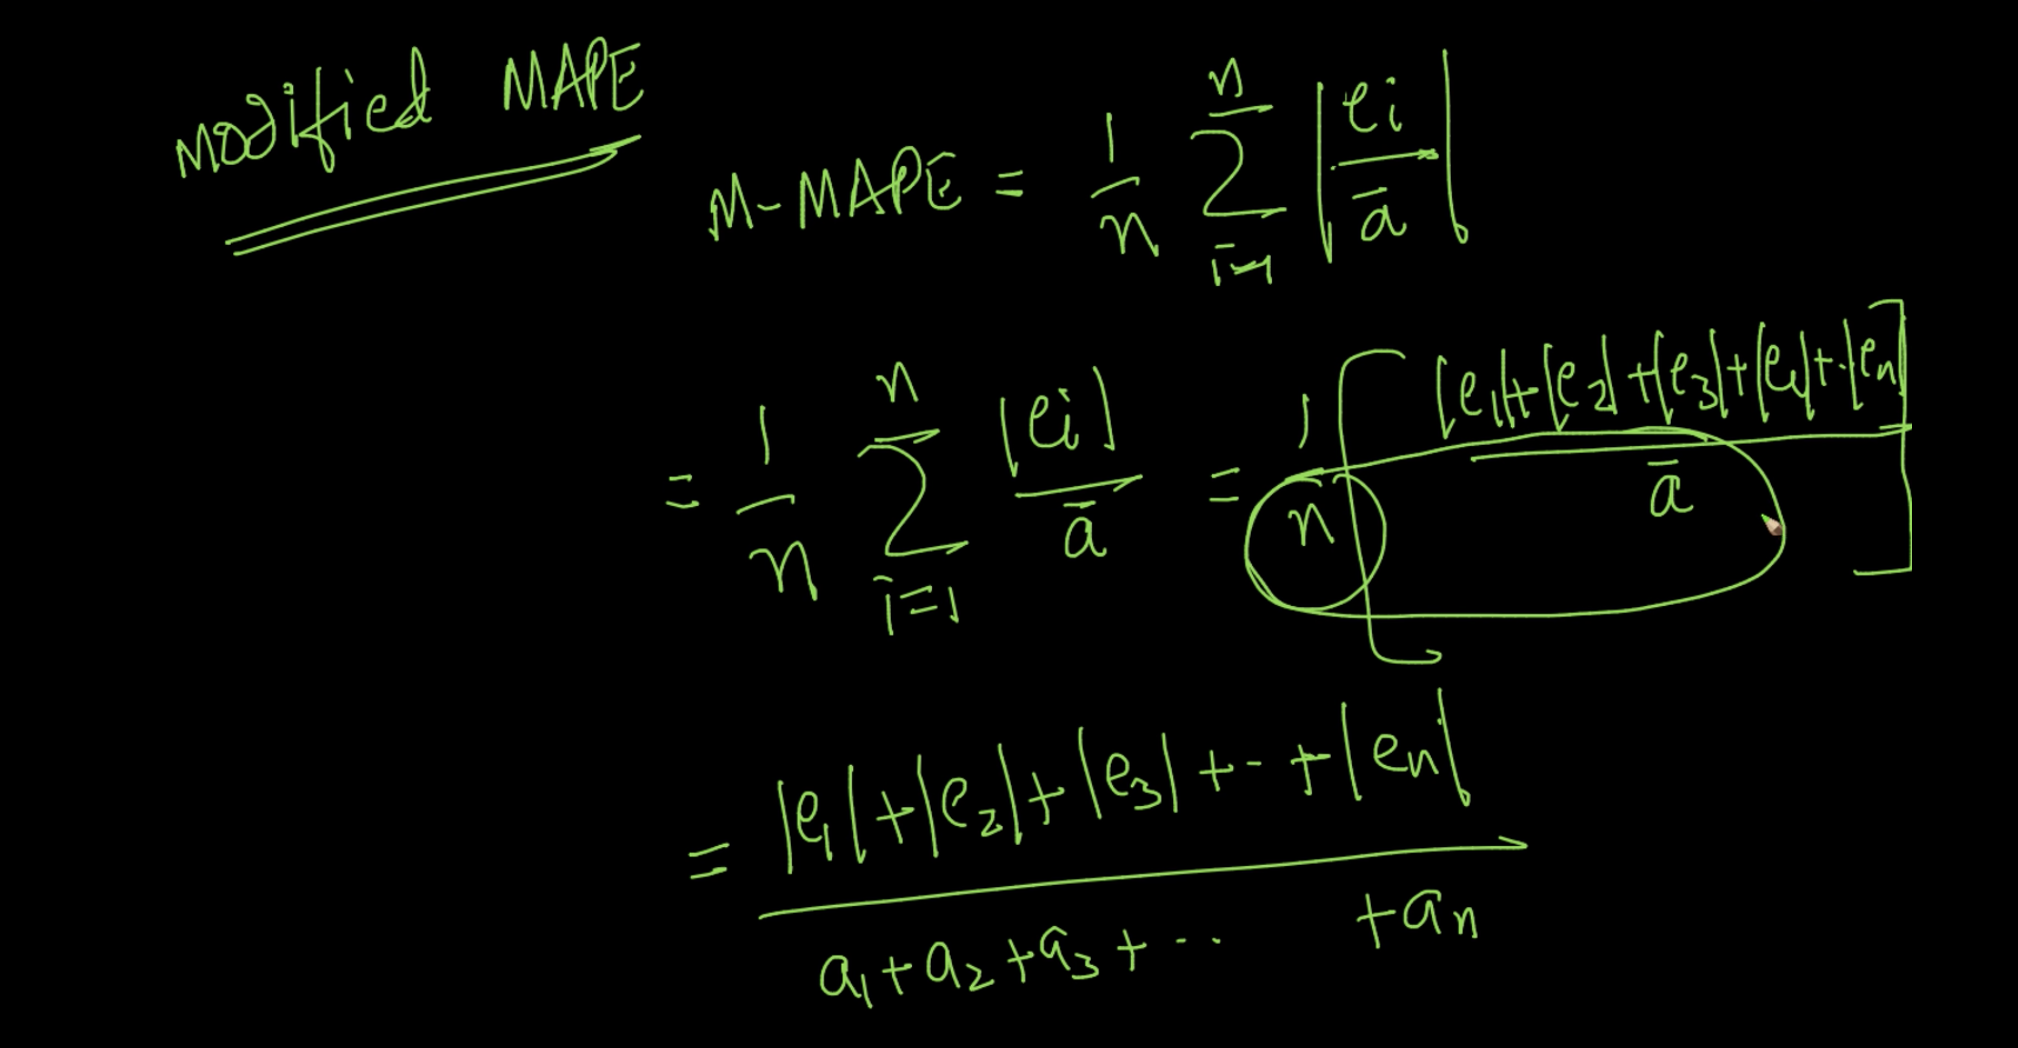 modified MAPE
M-MAPE = 1/n n∑i=1 |ei/ā|
= 1/n n∑i=1 |ei|/ā = 1/n [|e1|+|e2|+|e3|+|e4|+..|en|/ā]
= |e1|+|e2|+|e3|+..+|en|
a1+a2+a3+... +an